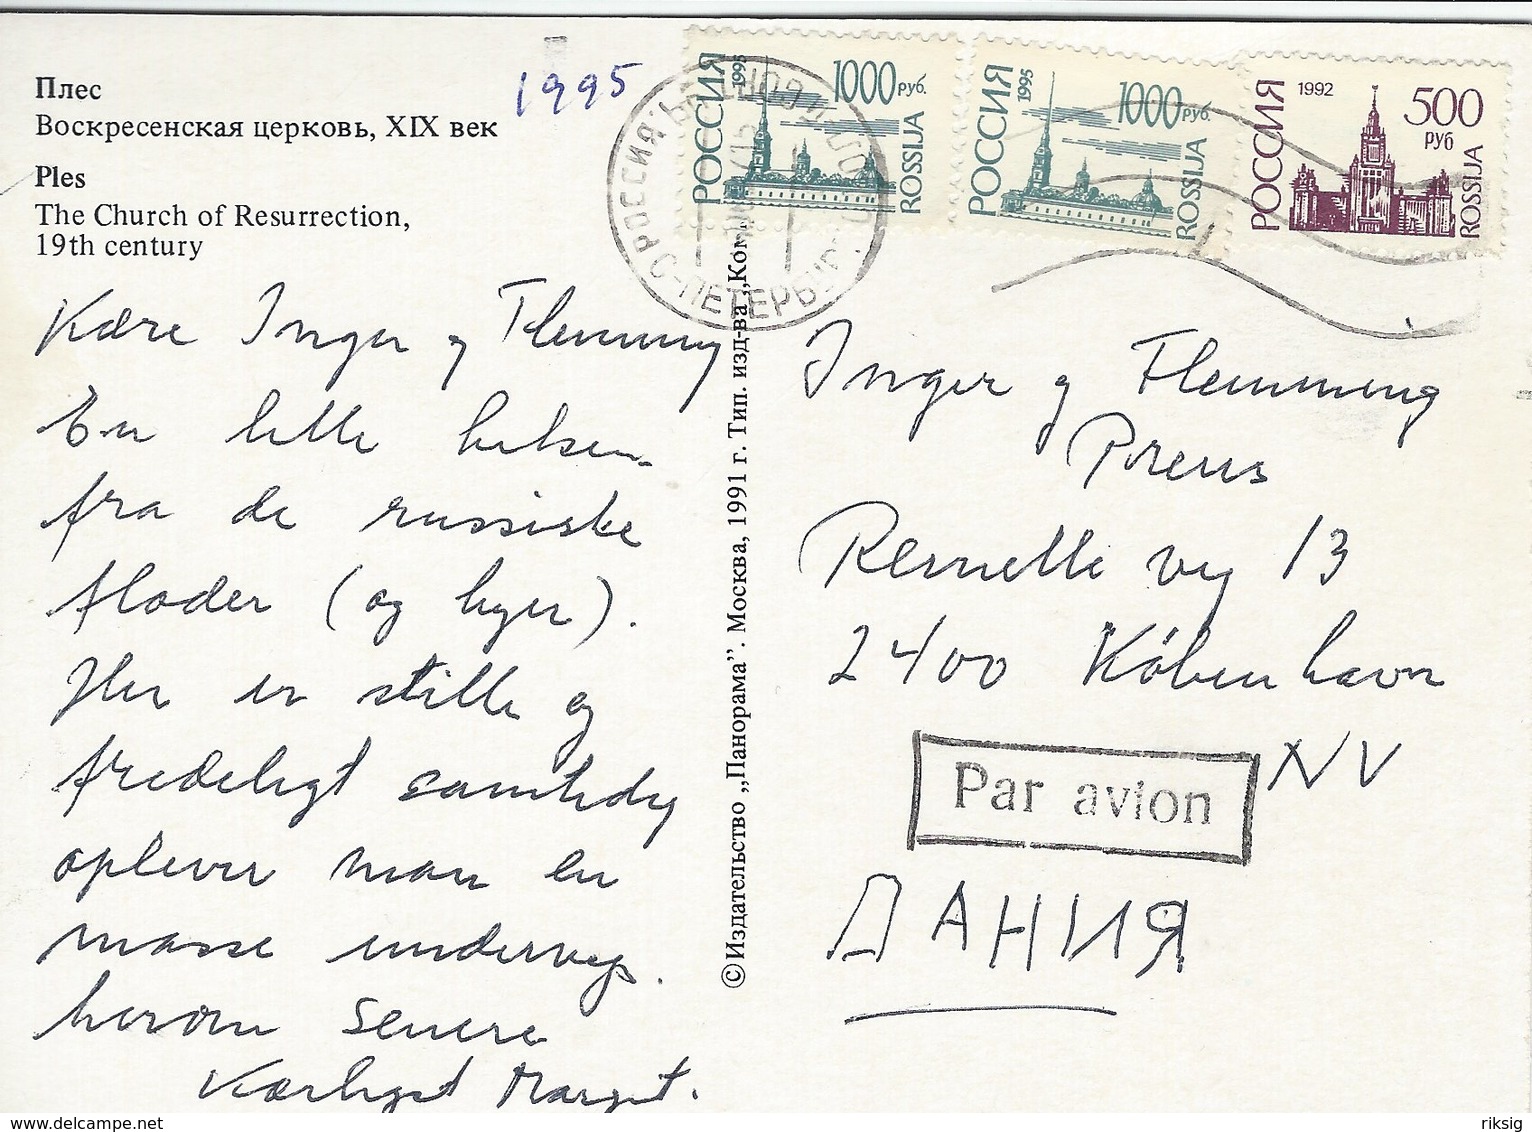 Плес
Воскресенская церковь, XIX век
Ples
The Church of Resurrection,
19th century
1995
РОССИЯ 1995 1000 руб. ROSSIJA
РОССИЯ 1995 1000 руб. ROSSIJA
РОССИЯ 1992 500 руб ROSSIJA
РОССИЯ С-ПЕТЕРБУРГ
Kære Inger og Flemming
En lille hilsen
fra de russiske
floder (og byer).
Her er stille og
fredeligt samtidig
oplever man en
masse undervejs.
herom senere
Kærligst Margit.
©Издательство „Панорама”. Москва, 1991 г. Тип. изд-ва „Ком
Inger og Flemming
Preus
Rentelle vej 13
2400 København
NV
Par avion
ДАНИЯ
www.delcampe.net
riksig